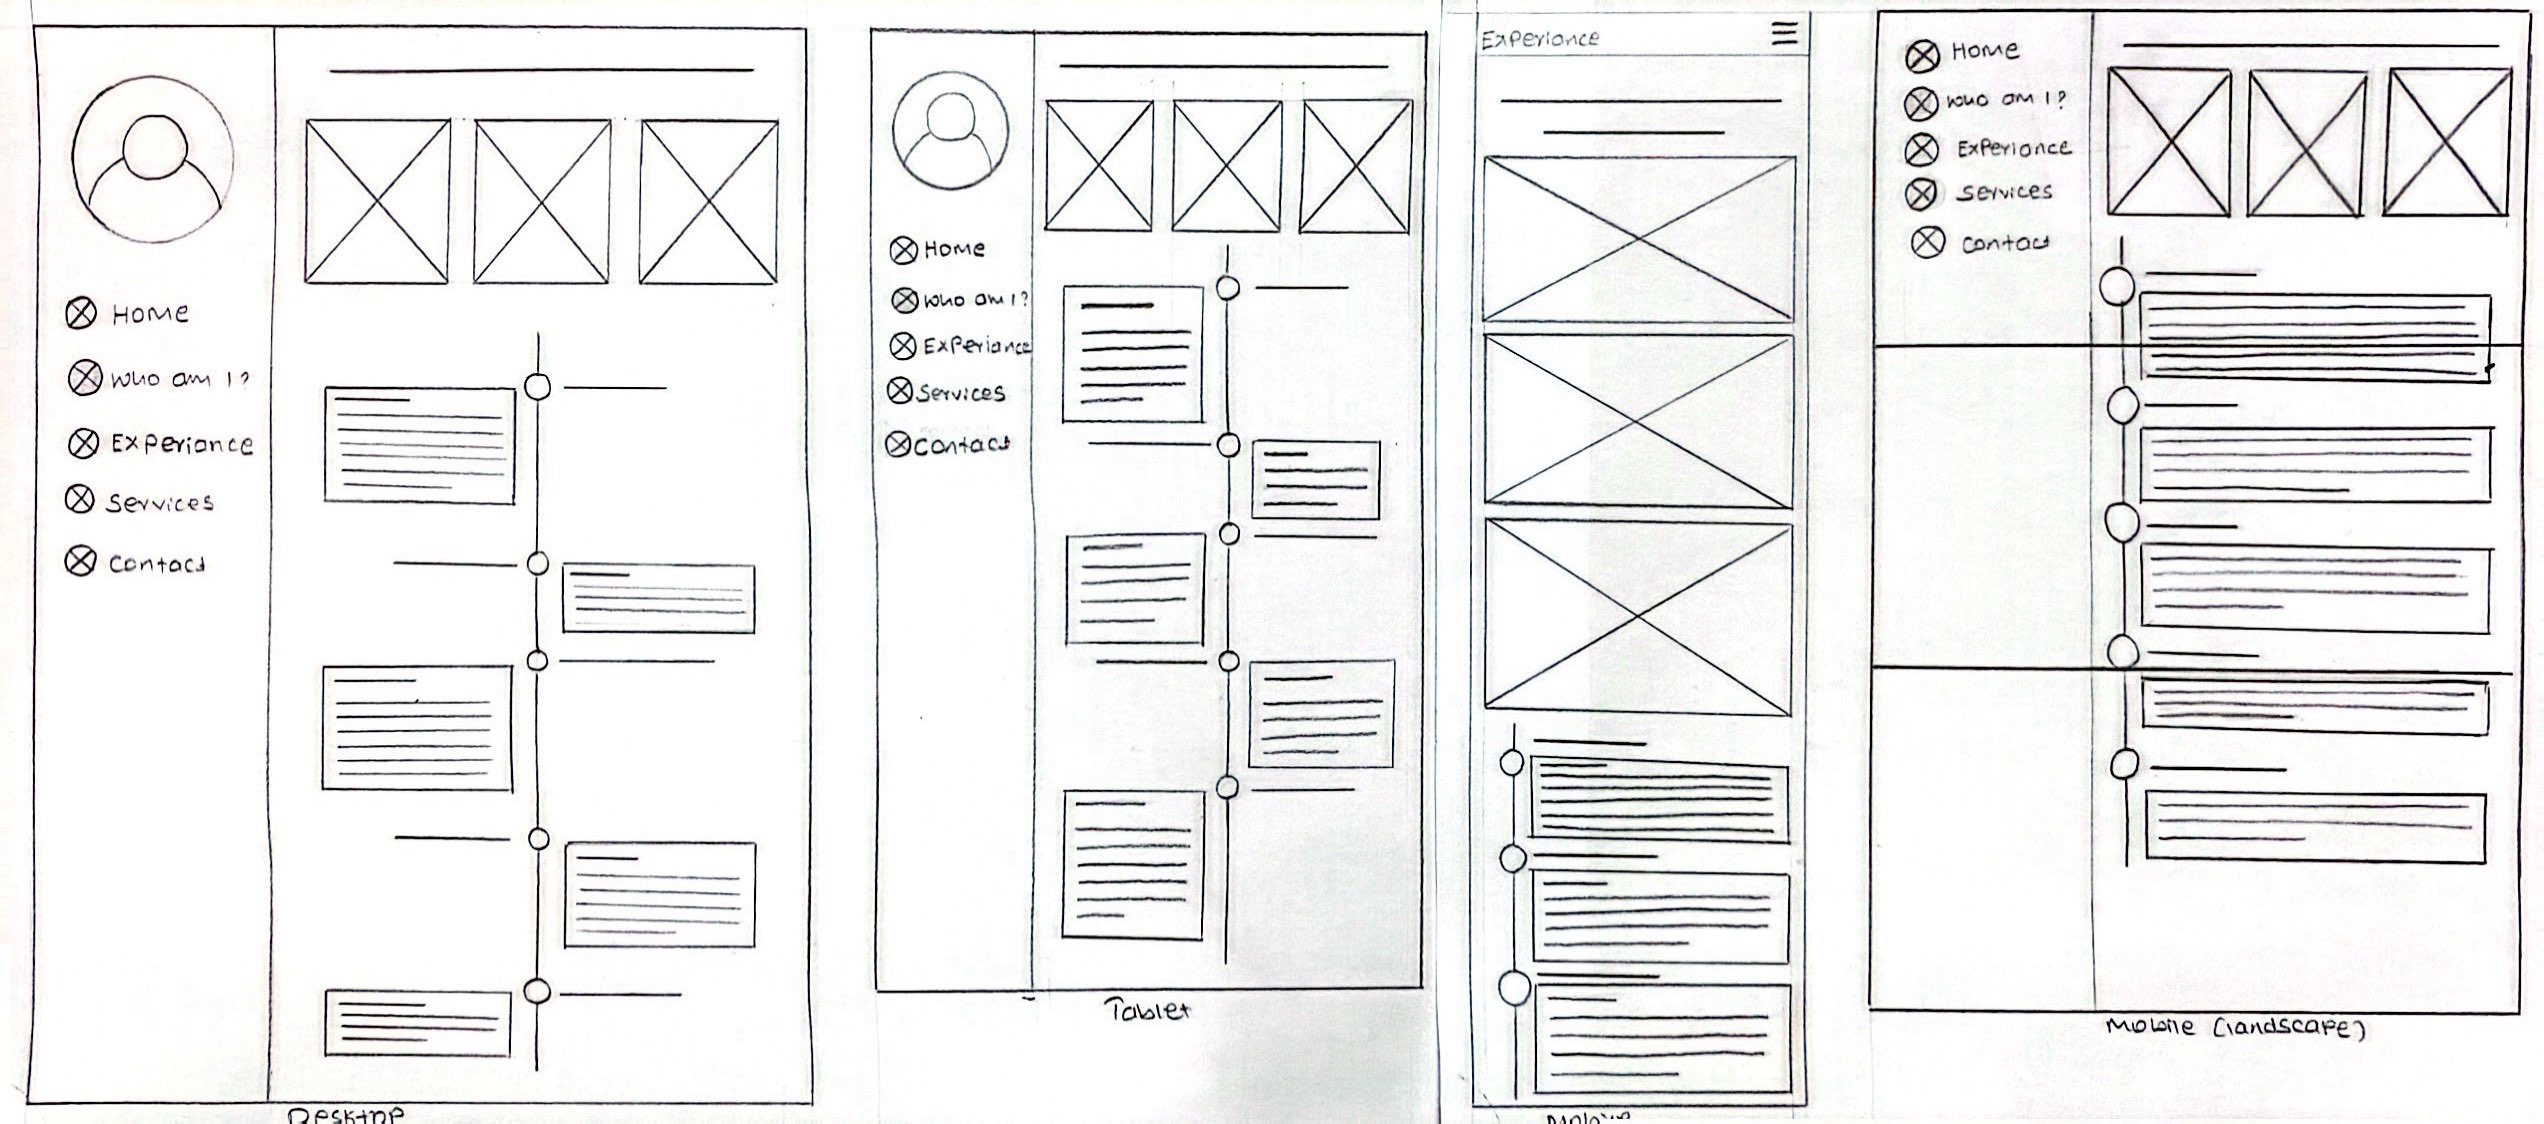 Home
Who am I?
Experiance
Services
Contact
Desktop
Home
Who am I?
Experiance
Services
Contact
Tablet
Experiance
Home
Who am I?
Experiance
Services
Contact
Mobile (landscape)